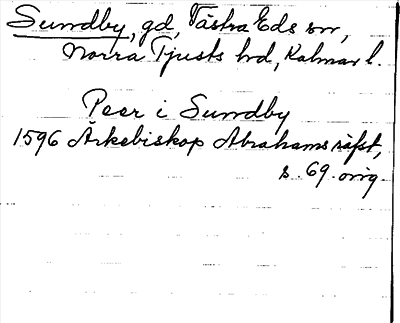 Sundby, gd, Västra Eds sn,
Norra Tjusts hd, Kalmar l.
Peer i Sundby
1596 Ärkebiskop Abrahams räfst,
s. 69. orig.